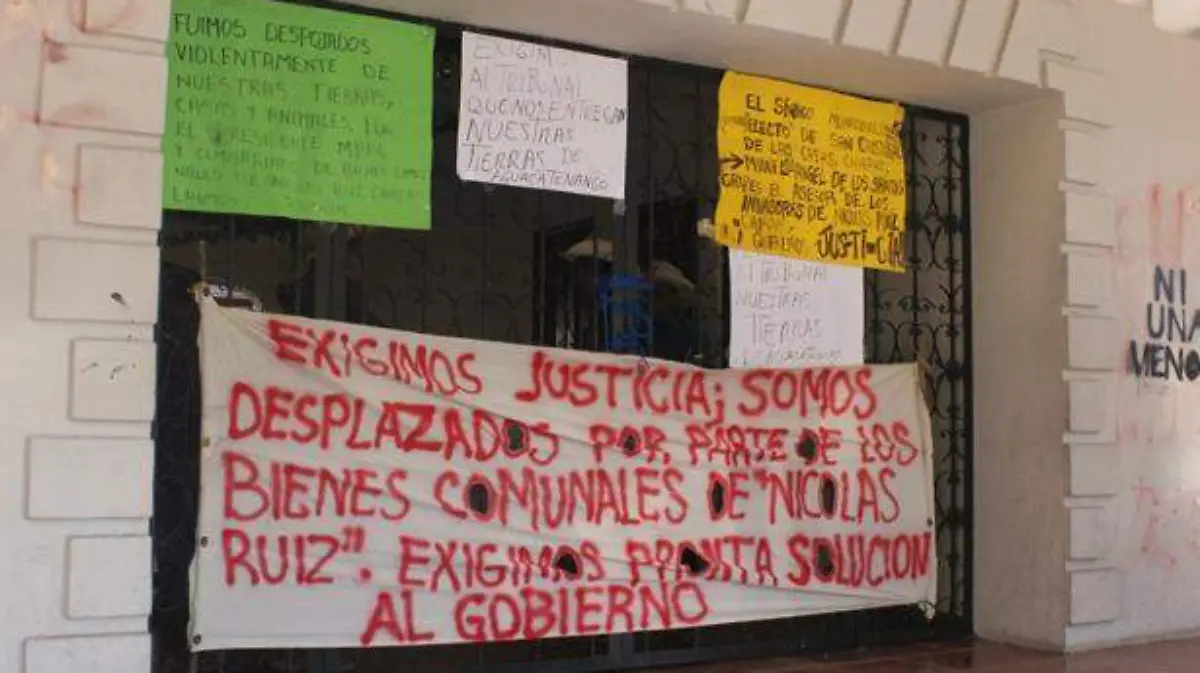 FUIMOS DESPOJADOS
VIOLENTAMENTE DE
NUESTRAS TIERRAS,
CASAS Y ANIMALES POR
EL PRESIDENTE MPAL
Y COMISARIADO DE BIENES
EXIGIMOS
AL TRIBUNAL
QUE NOS ENTREGAN
NUESTRAS
TIERRAS DE
AGUACATENANGO
EL SINDICO MUNICIPAL
ELECTO DE SAN CRISTOBAL
DE LAS CASAS, CHIAPAS,
→ MIGUEL ANGEL DE LOS SANTOS
ES EL ASESOR DE LOS
INVASORES DE NICOLAS RUIZ
JUSTICIA
AL TRIBUNAL
NUESTRAS
TIERRAS
EXIGIMOS JUSTICIA; SOMOS
DESPLAZADOS POR PARTE DE LOS
BIENES COMUNALES DE "NICOLAS
RUIZ". EXIGIMOS PRONTA SOLUCION
AL GOBIERNO
NI
UNA
MENOS